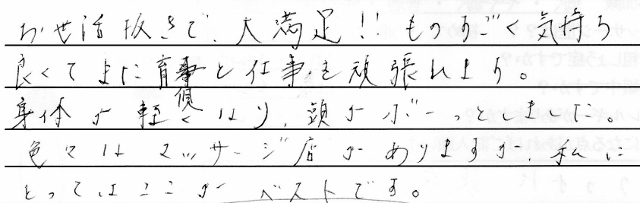 お世話抜きで、大満足!!ものすごく気持ち
良くてまた育児と仕事を頑張れます。
身体が軽くなり、頭がボーっとしました。
色々なマッサージ店がありますが、私に
とってはここがベストです。